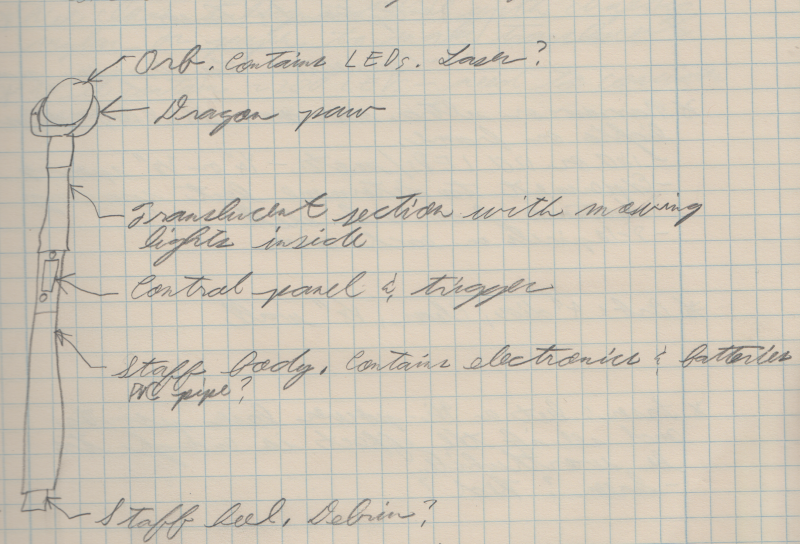 Orb. Contains LEDs. Laser?
Dragon paw
Translucent section with moving
lights inside
Control panel & trigger
Staff body. Contains electronics & batteries
PVC pipe?
Staff heel. Delrin?